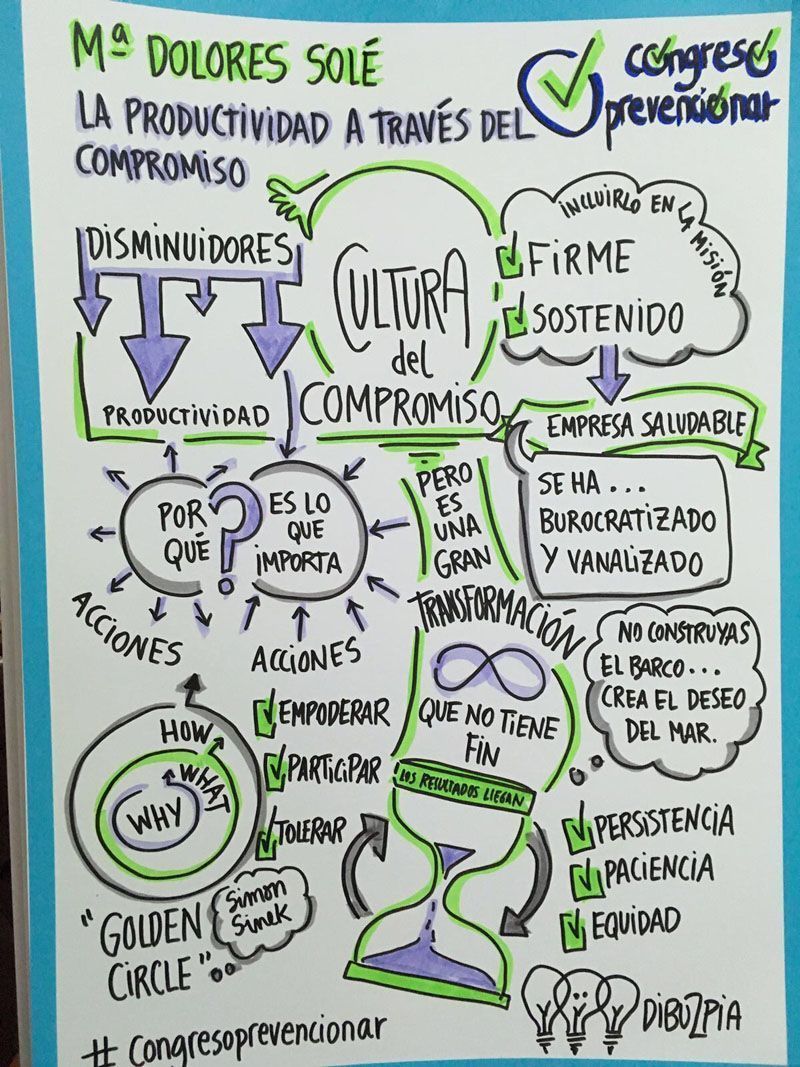 Mª DOLORES SOLÉ
LA PRODUCTIVIDAD A TRAVÉS DEL
COMPROMISO
congreso
prevencionar
DISMINUIDORES
PRODUCTIVIDAD
CULTURA
del
COMPROMISO
INCLUIRLO EN LA MISIÓN
FIRME
SOSTENIDO
EMPRESA SALUDABLE
SE HA...
BUROCRATIZADO
Y VANALIZADO
POR
QUÉ
?
ES LO
QUE
IMPORTA
ACCIONES
ACCIONES
PERO
ES
UNA
GRAN
TRANSFORMACIÓN
QUE NO TIENE
FIN
LOS RESULTADOS LLEGAN
NO CONSTRUYAS
EL BARCO...
CREA EL DESEO
DEL MAR.
HOW
WHAT
WHY
EMPODERAR
PARTICIPAR
TOLERAR
PERSISTENCIA
PACIENCIA
EQUIDAD
"GOLDEN
CIRCLE"
Simon
Sinek
#Congresoprevencionar
DIBUZPIA